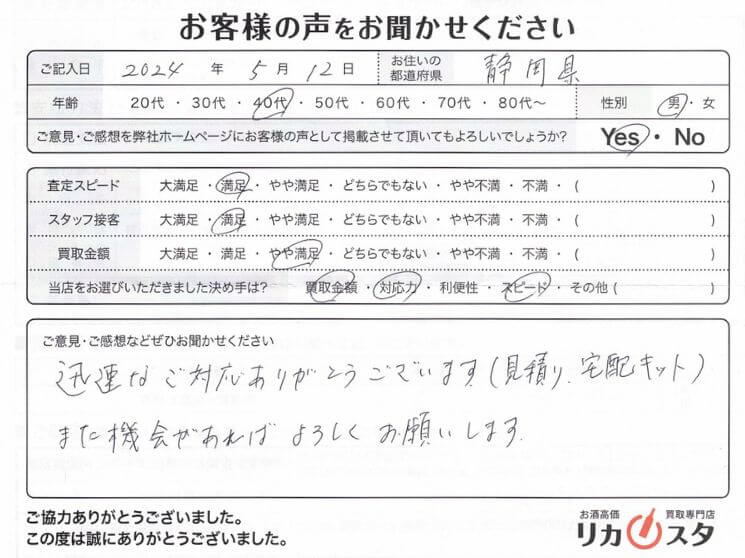 お客様の声をお聞かせください
ご記入日 2024 年 5 月 12 日 お住いの都道府県 静岡県
年齢 20代 ・ 30代 ・ 40代 ・ 50代 ・ 60代 ・ 70代 ・ 80代〜 性別 男・女
ご意見・ご感想を弊社ホームページにお客様の声として掲載させて頂いてもよろしいでしょうか? Yes ・ No
査定スピード 大満足 ・ 満足 ・ やや満足 ・ どちらでもない ・ やや不満 ・ 不満 ・ ( )
スタッフ接客 大満足 ・ 満足 ・ やや満足 ・ どちらでもない ・ やや不満 ・ 不満 ・ ( )
買取金額 大満足 ・ 満足 ・ やや満足 ・ どちらでもない ・ やや不満 ・ 不満 ・ ( )
当店をお選びいただきました決め手は? 買取金額 ・ 対応力 ・ 利便性 ・ スピード ・ その他 ( )
ご意見・ご感想などぜひお聞かせください
迅速なご対応ありがとうございます(見積り、宅配キット)
また機会があればよろしくお願いします.
ご協力ありがとうございました。
この度は誠にありがとうございました。
お酒高価 買取専門店
リカスタ